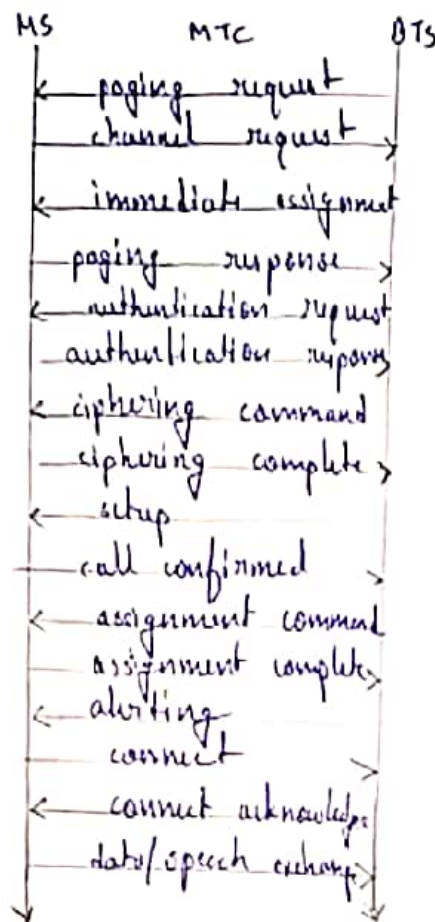 MS MTC BTS
paging request
channel request
immediate assignment
paging response
authentication request
authentication response
ciphering command
ciphering complete
setup
call confirmed
assignment command
assignment complete
alerting
connect
connect acknowledge
data/speech exchange